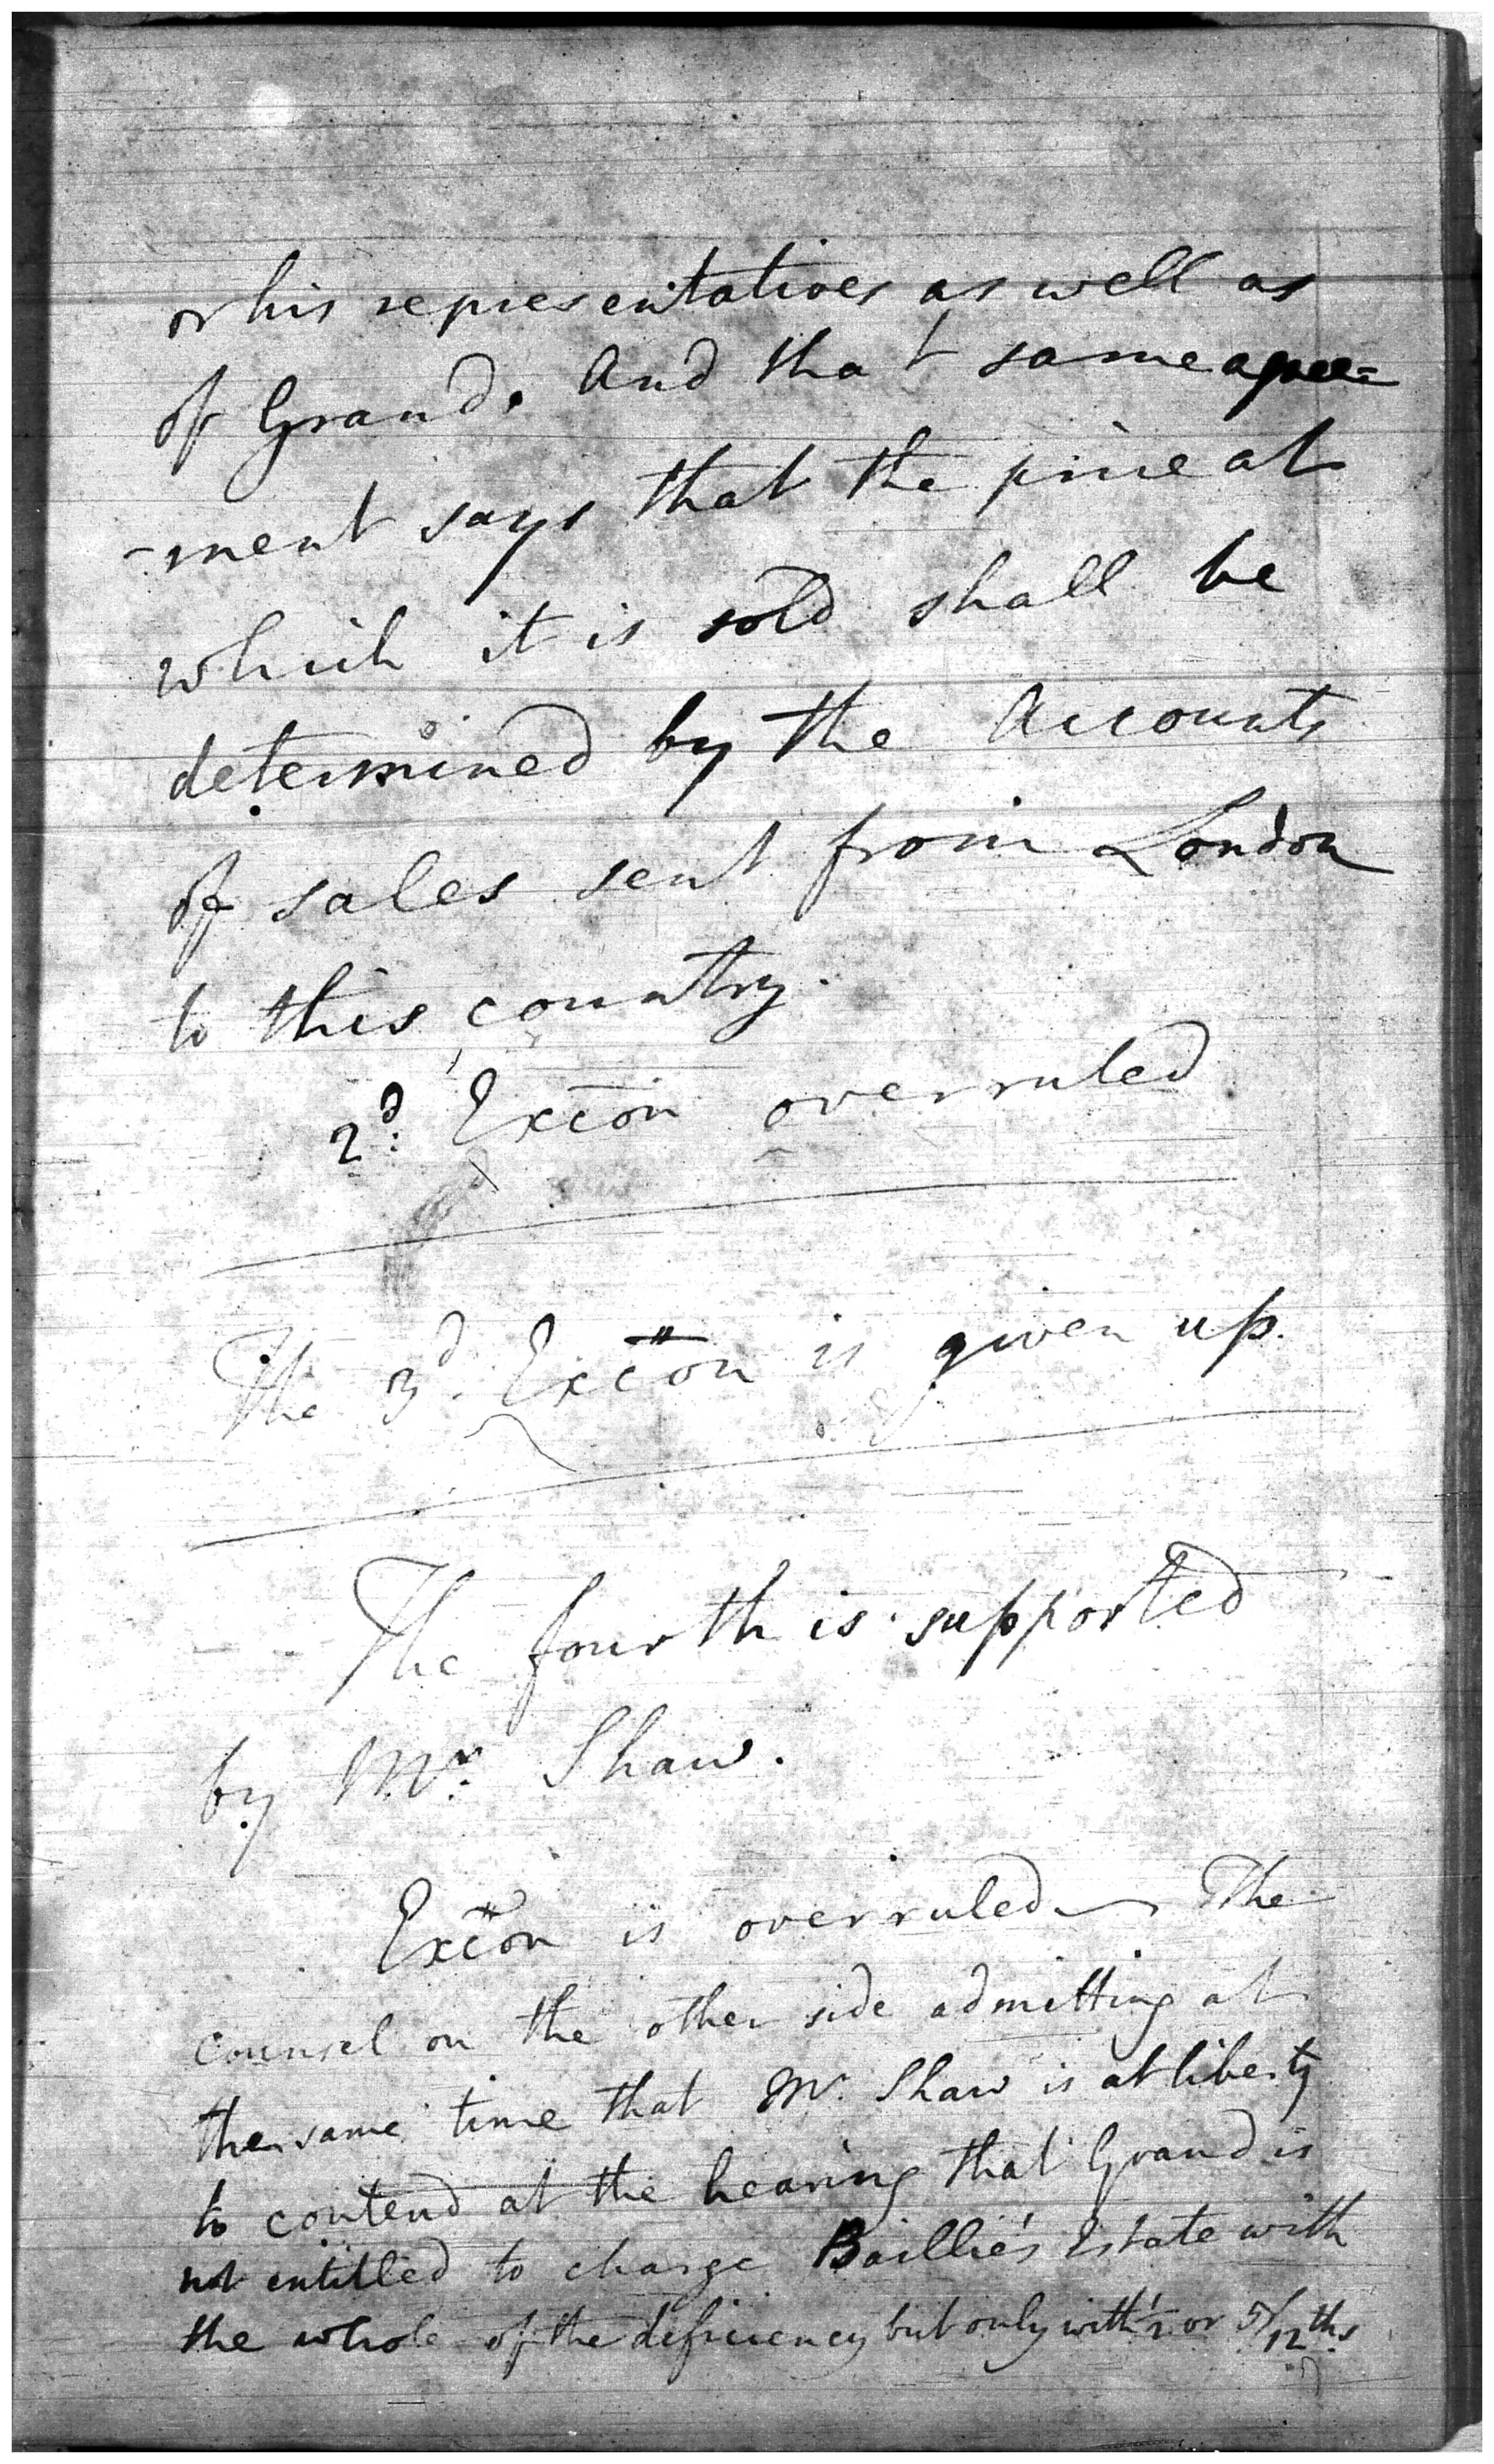 or his representatives as well as
of Grand. And that same agree=
-ment says that the price at
which it is sold shall be
determined by the Accounts
of sales sent from London
to this country.
2d: Excon overruled
The 3d. Excon is given up.
The fourth is supported
by Mr. Shaw.
Excon is overruled - The
counsel on the other side admitting at
the same time that Mr. Shaw is at liberty
to contend at the hearing that Grand is
not entitled to charge Baillie's Estate with
the whole of the deficiency but only with or 5/12ths.